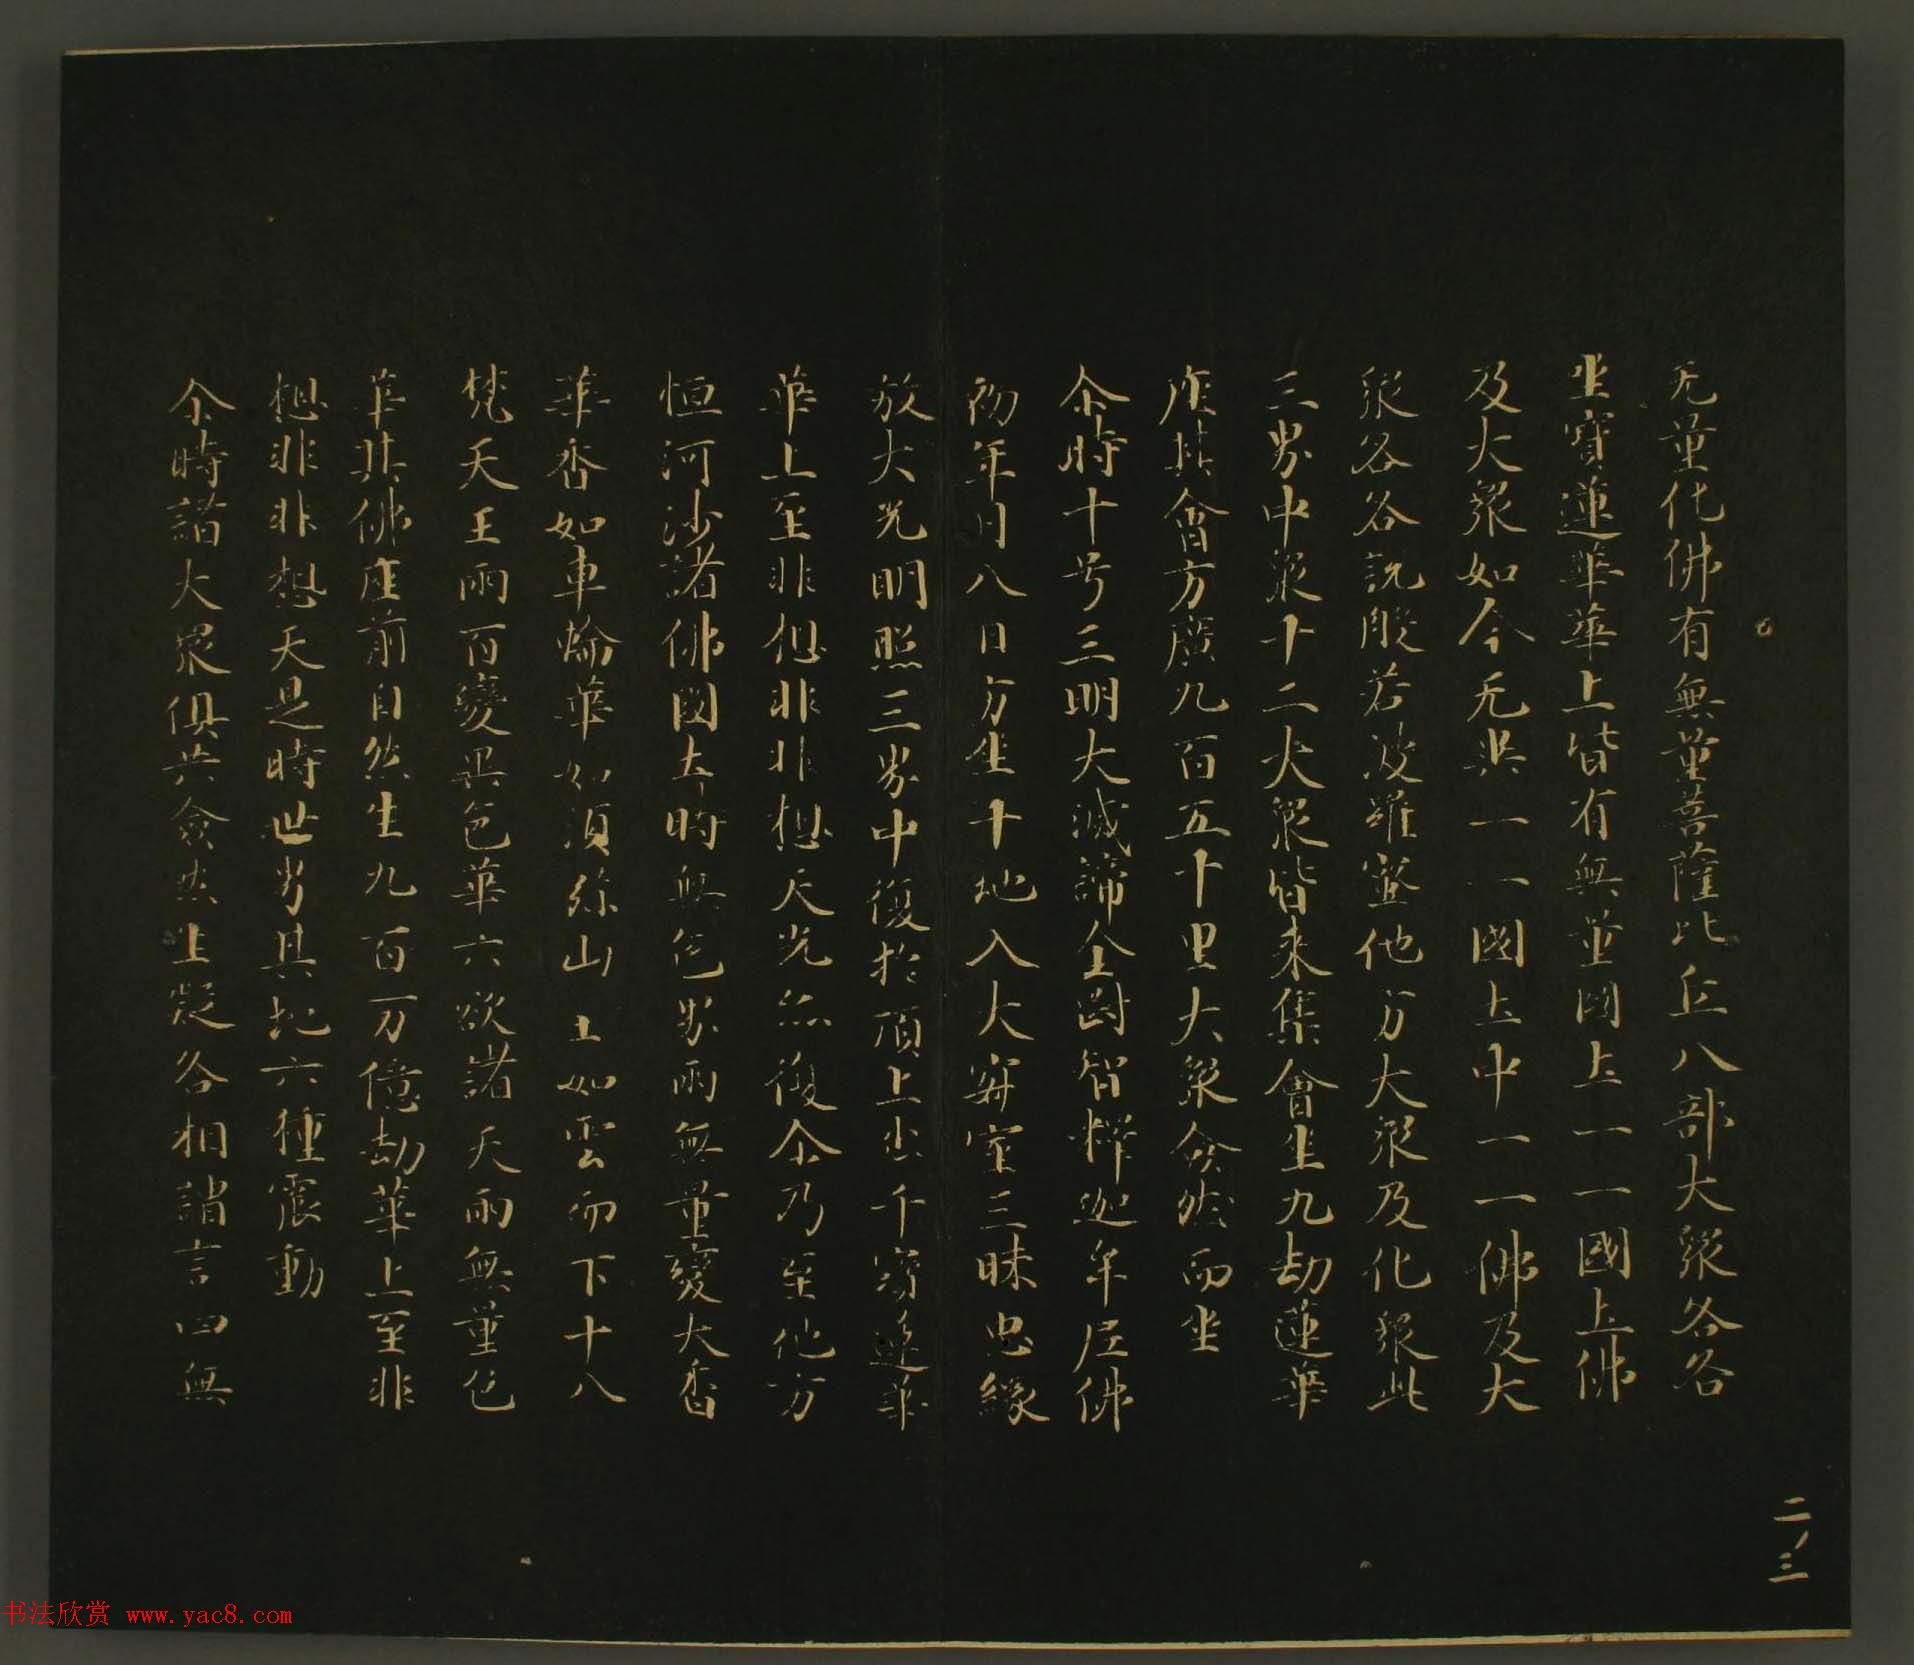 无量化佛有無量菩薩比丘八部大衆各各
坐寳蓮華華上皆有無量國土一一國土佛
及大衆如今无異一一國土中一一佛及大
衆各各說般若波羅蜜他方大衆及化衆此
三界中衆十二大衆皆来集會坐九劫蓮華
座其會方廣九百五十里大衆僉然而坐
尒時十号三明大滅諦金剛智釋迦牟尼佛
初年月八日方坐十地入大寂室三昧思緣
放大光明照三界中復扵頂上出千寳蓮華
華上至非想非非想天光亦復尒乃至他方
恒河沙諸佛國土時無色界雨無量變大香
華香如車輪華如須弥山王如雲而下十八
梵天王雨百變異色華六欲諸天雨無量色
華其佛座前自然生九百万億劫華上至非
想非非想天是時世界其地六種震動
尒時諸大衆俱共僉然生疑各相謂言四無
二ノ三
书法欣赏 www.yac8.com